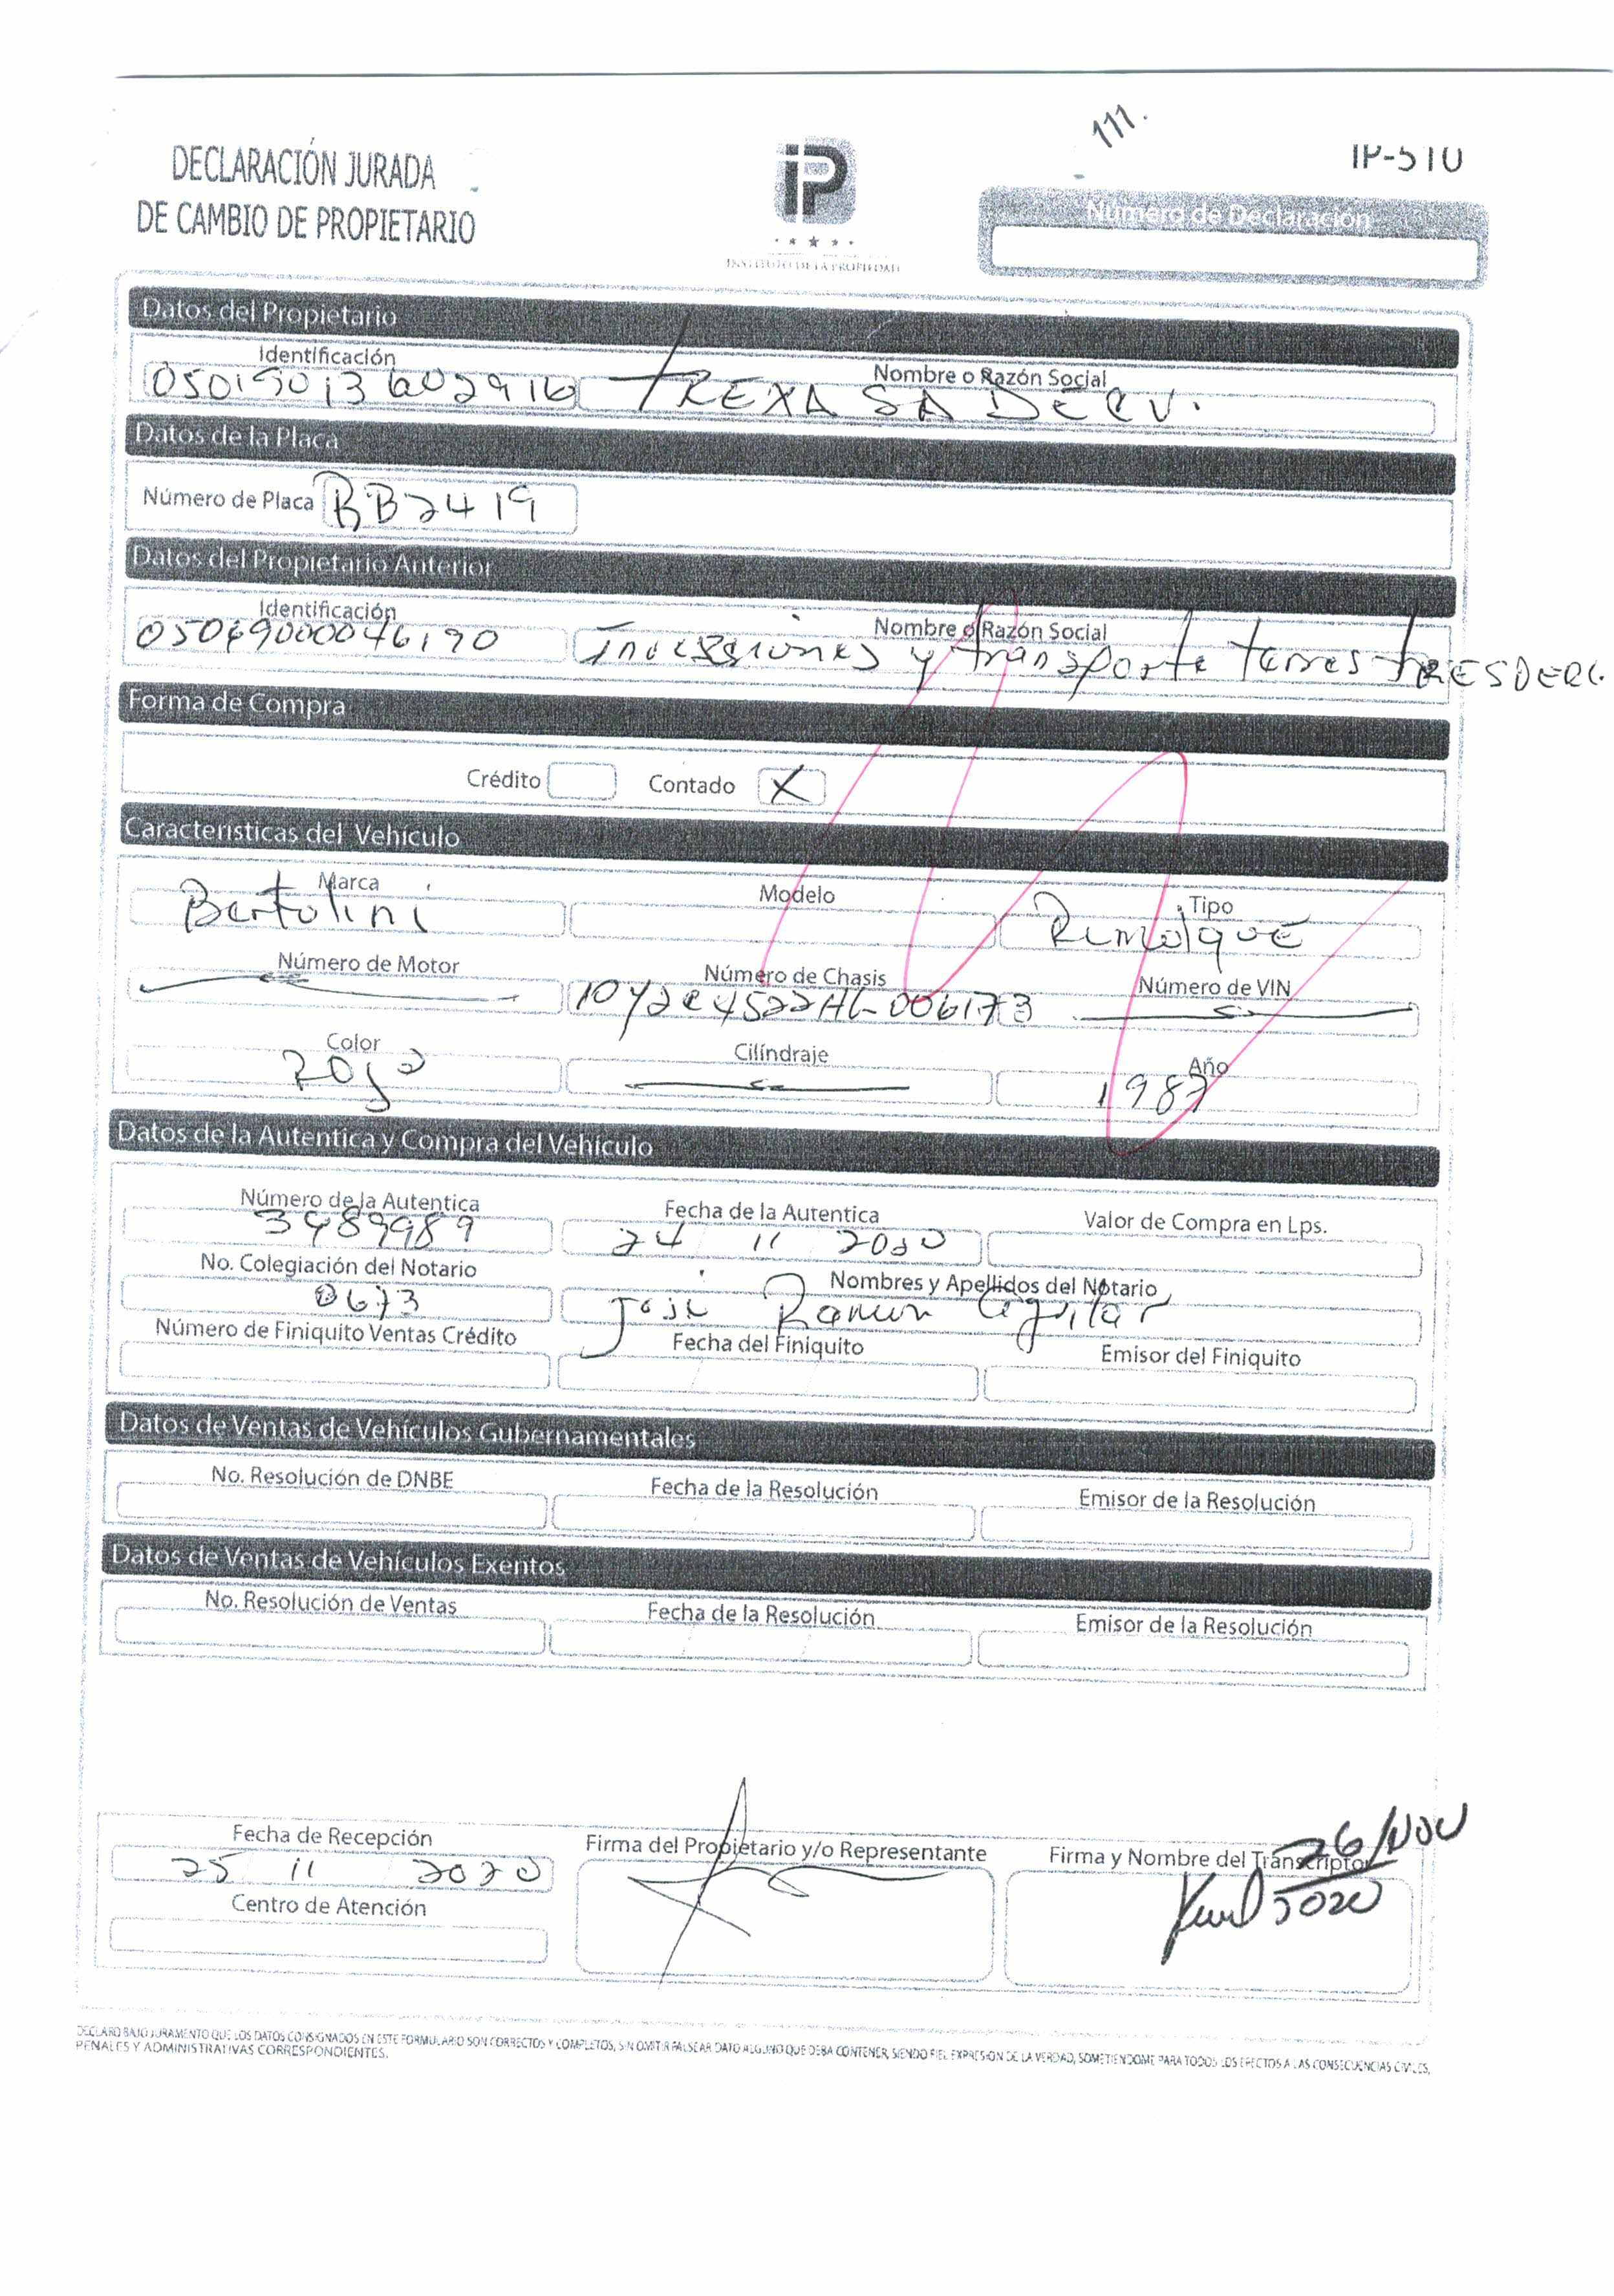 111.
IP-510
DECLARACIÓN JURADA
DE CAMBIO DE PROPIETARIO
iP
INSTITUTO DE LA PROPIEDAD
Número de Declaración
Datos del Propietario
Identificación
Nombre o Razón Social
TREXA SA DE CV.
Datos de la Placa
Número de Placa
RB2419
Datos del Propietario Anterior
Identificación
Nombre o Razón Social
05069000046190
Inversiones y transporte terrestre
Forma de Compra
Crédito
Contado X
Caracteristicas del Vehículo
Marca
Modelo
Tipo
Bertolini
Remolque
Número de Motor
Número de Chasis
Número de VIN
Color
Cilíndraje
Año
Rojo
1987
Datos de la Autentica y Compra del Vehículo
Número de la Autentica
Fecha de la Autentica
Valor de Compra en Lps.
3489989
24 11 2020
No. Colegiación del Notario
Nombres y Apellidos del Notario
0673
Jose Ramon Aguilar
Número de Finiquito Ventas Crédito
Fecha del Finiquito
Emisor del Finiquito
Datos de Ventas de Vehículos Gubernamentales
No. Resolución de DNBE
Fecha de la Resolución
Emisor de la Resolución
Datos de Ventas de Vehículos Exentos
No. Resolución de Ventas
Fecha de la Resolución
Emisor de la Resolución
Fecha de Recepción
Firma del Propietario y/o Representante
Firma y Nombre del Transcriptor
25 11 2020
26/NOV
2020
Centro de Atención
DECLARO BAJO JURAMENTO QUE LOS DATOS CONSIGNADOS EN ESTE FORMULARIO SON CORRECTOS Y COMPLETOS, SIN OMITIR FALSEAR DATO ALGUNO QUE DEBA CONTENER, SIENDO FIEL EXPRESION DE LA VERDAD, SOMETIENDOME PARA TODOS LOS EFECTOS A LAS CONSECUENCIAS CIVILES,
PENALES Y ADMINISTRATIVAS CORRESPONDIENTES.